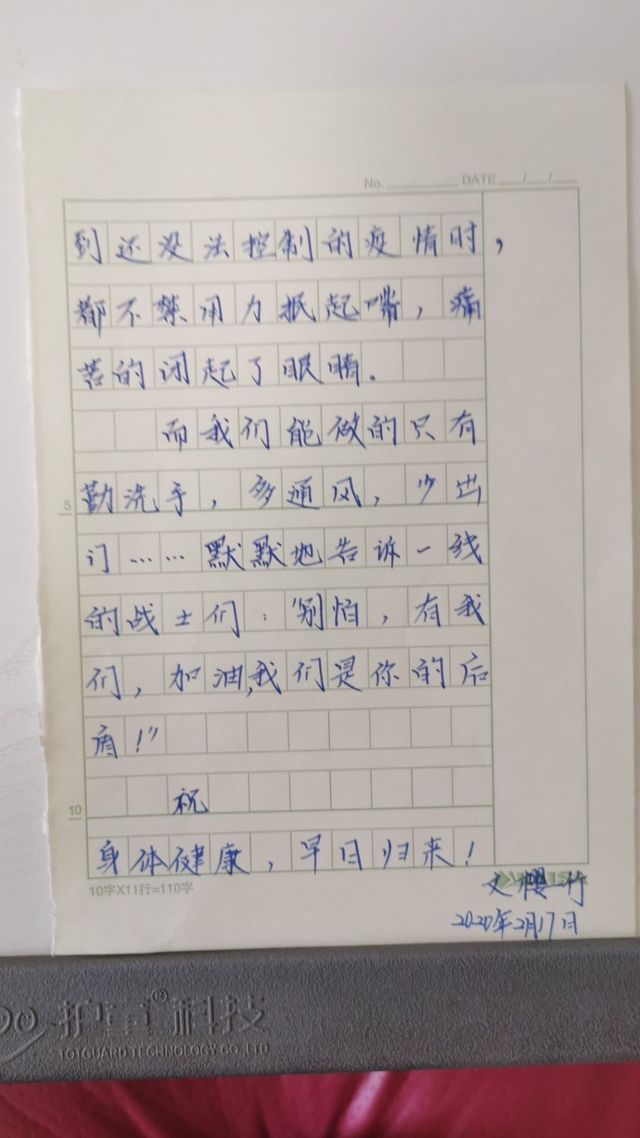 No. DATE / /
到还没法控制的疫情时，
都不禁用力抿起嘴，痛
苦的闭起了眼睛.
而我们能做的只有
勤洗手，多通风，少出
门……默默地告诉一线
的战士们：“别怕，有我
们，加油,我们是你的后
盾！”
祝
身体健康，早日归来！
5
10
10字X11行=110字
文樱竹
2020年2月17日
护童®科技
TOTGUARD TECHNOLOGY CO.,LTD